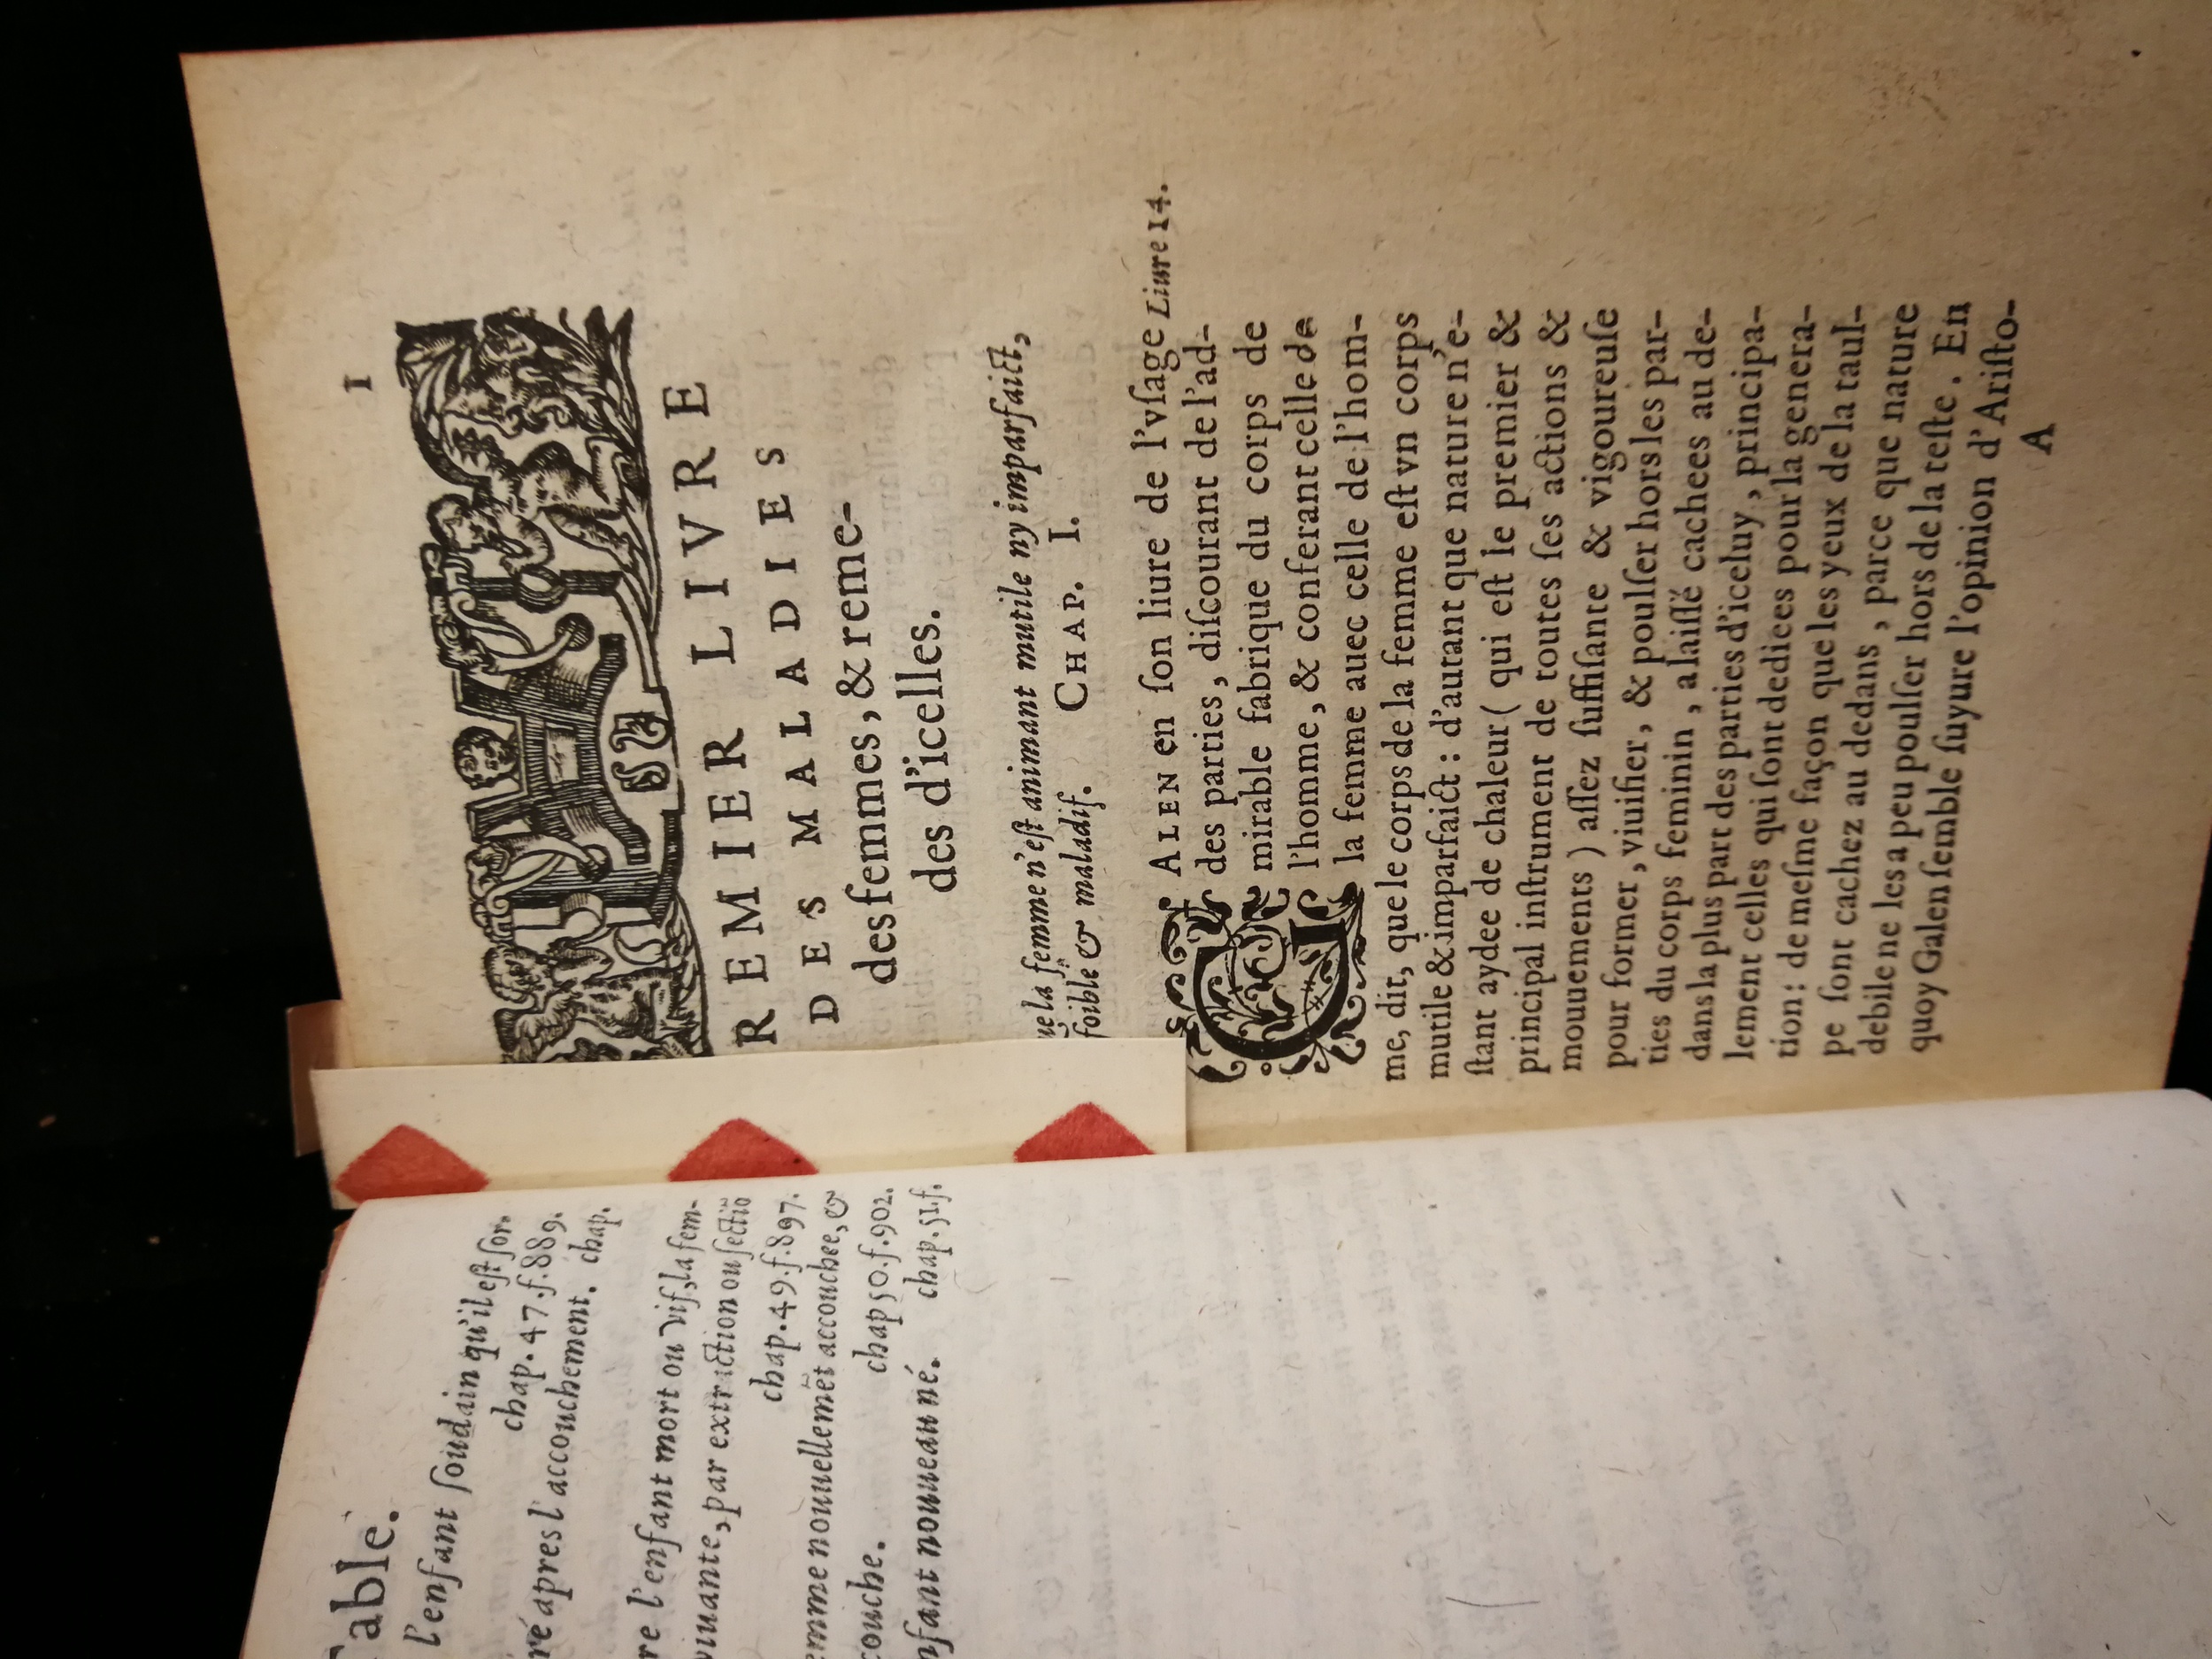 Table.
l'enfant ſoudain qu'il eſt ſor.
chap. 47. f. 889.
ré apres l'accouchement. chap.
re l'enfant mort ou vif, la fem-
viuante, par extriction ou ſectiō
chap. 49. f. 897.
emme nouuellemēt accouchee, &
couche. chap 50. f. 902.
nfant nouueau né. chap. 51. f.
1
REMIER LIVRE
DES MALADIES
des femmes, & reme-
des d'icelles.
ue la femme n'eſt animant mutile ny imparfaict,
foible & maladif. CHAP. I.
GALEN en ſon liure de l'vſage Liure 14.
des parties, diſcourant de l'ad-
mirable fabrique du corps de
l'homme, & conferant celle de
la femme auec celle de l'hom-
me, dit, que le corps de la femme eſt vn corps
mutile & imparfaict : d'autant que nature n'e-
ſtant aydee de chaleur ( qui eſt le premier &
principal inſtrument de toutes ſes actions &
mouuements ) aſſez ſuffiſante & vigoureuſe
pour former, viuifier, & poulſer hors les par-
ties du corps feminin, a laiſſé cachees au de-
dans la plus part des parties d'iceluy, principa-
lement celles qui ſont dediees pour la genera-
tion : de meſme façon que les yeux de la taul-
pe ſont cachez au dedans, parce que nature
debile ne les a peu poulſer hors de la teſte. En
quoy Galen ſemble ſuyure l'opinion d'Ariſto-
A